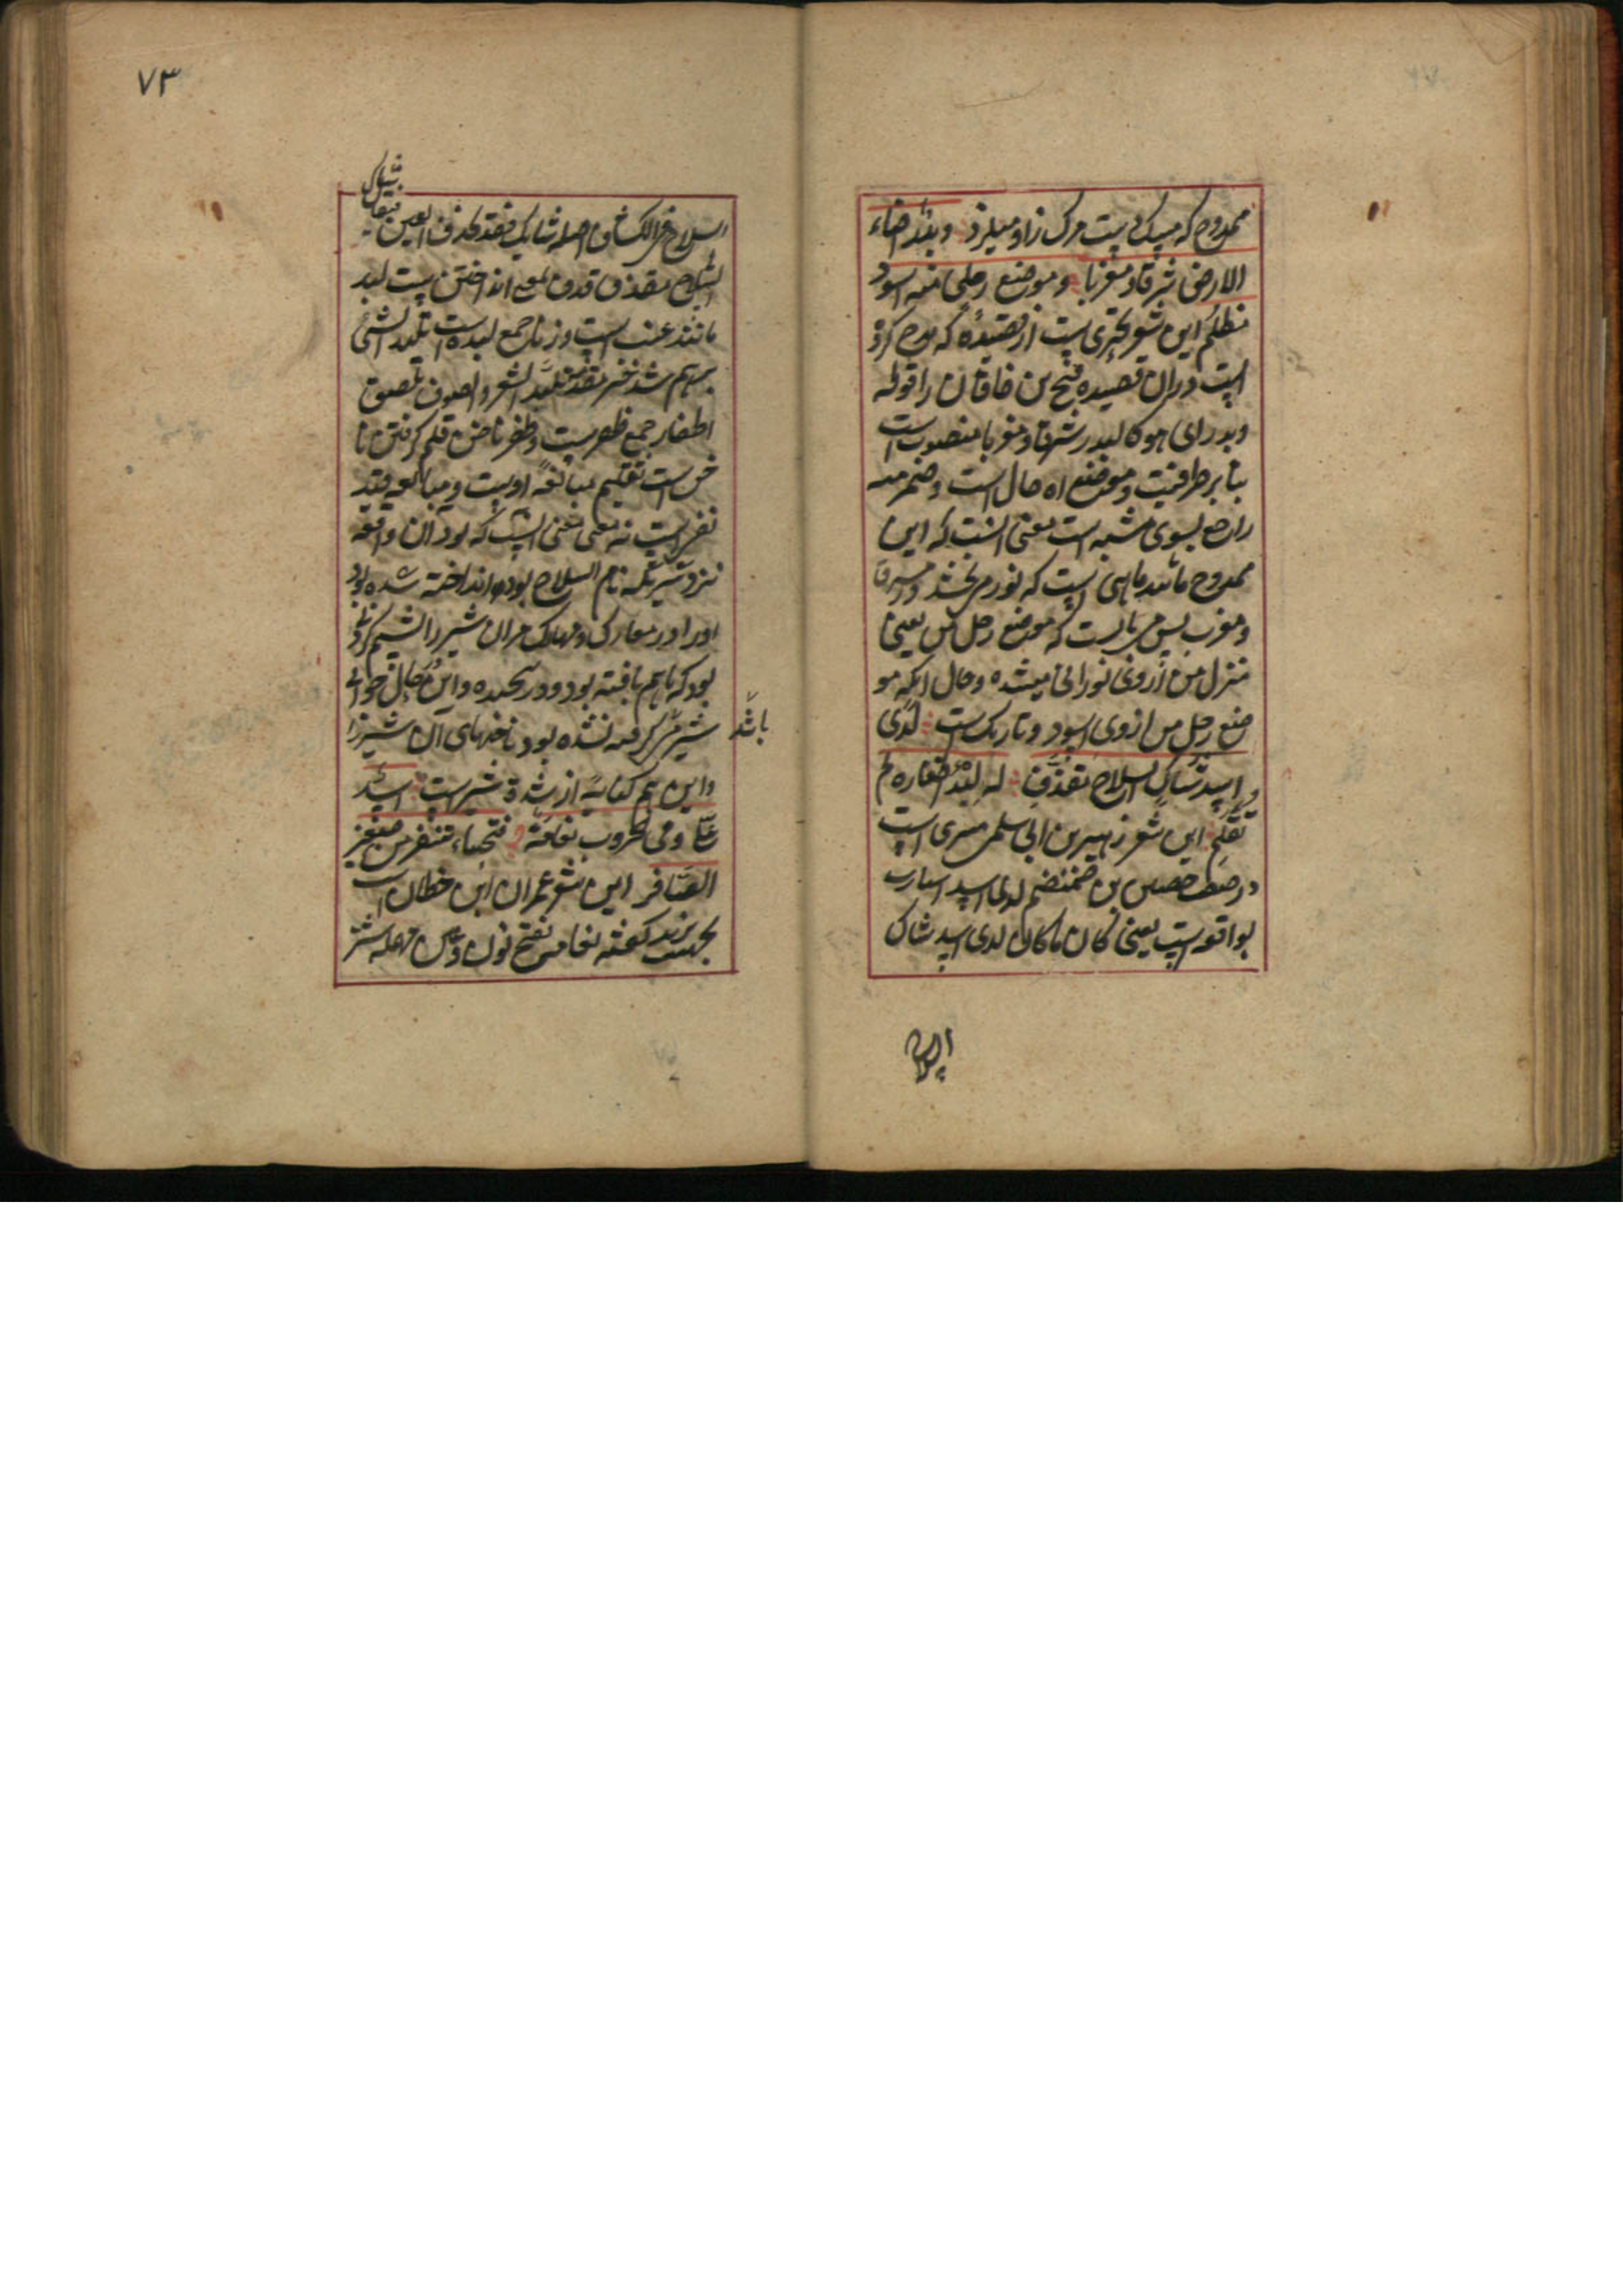 ممدوح که میبیند ... مرگ را و میلرزد وبدر اضاء
الارض شرقا و مغربا وموضع رحلی منه اسود
مظلم این شعر بحتری است از قصیده که مدح کرده
است دران قصیده فتح بن خاقان را قوله
وبدر ای هو کالبدر شرقا و مغربا منصوب است
بنابر ظرفیت و موضع اه حال است و ضمیر منه
راجع بسوی مشبه است معنی انست که این
ممدوح مانند ماهی است که نور می بخشد در مشرق
و مغرب پس می بایست که موضع رحل من یعنی
منزل من از وی نورانی میشد و حال آنکه مو
ضع رحل من از وی اسود و تاریک است لدی
اسد شاکی السلاح مقذف له لبد اظفاره لم
تقلم این شعر زهیر بن ابی سلمی ... است
در صفت حصین بن ضمضم لدی اسد ...
بواقعه است یعنی کان ما کان لدی اسد شاک
السلاح
۷۳
شاک
فیقال
السلاح فی الکشاف اصله شایک فقد یحذف العین
السلاح مقذف قذف بمعنی انداختن است لبد
مانند عنب است وزنا جمع لبده است تلبد الشئ
بر هم شد ... تلبد الشعر والصوف تلصق
اظفار جمع ظفر است و ظفر ناخن قلم گرفتن نا
خن است تقلیم مبالغه اوست و مبالغه قید
نفی است نه نفی معنی انست که بود آن واقعه
نزد شیری که تام السلاح بود و انداخته شده بود
او را در معارک و مهالک مر ان شیر را ...
بود که باهم بافته بود و در پیچیده و این حال ...
شیر ... گرفته نشده بود ناخنهای آن شیر را
باشد
و این هم کنایة از شدة شیر است اسد
علی وفی الحروب نعامة فتخاء تنفر من صفیر
الصافر این شعر عمران ابن حطان است
... گفته نعامه بفتح نون وعین مهمله شتر